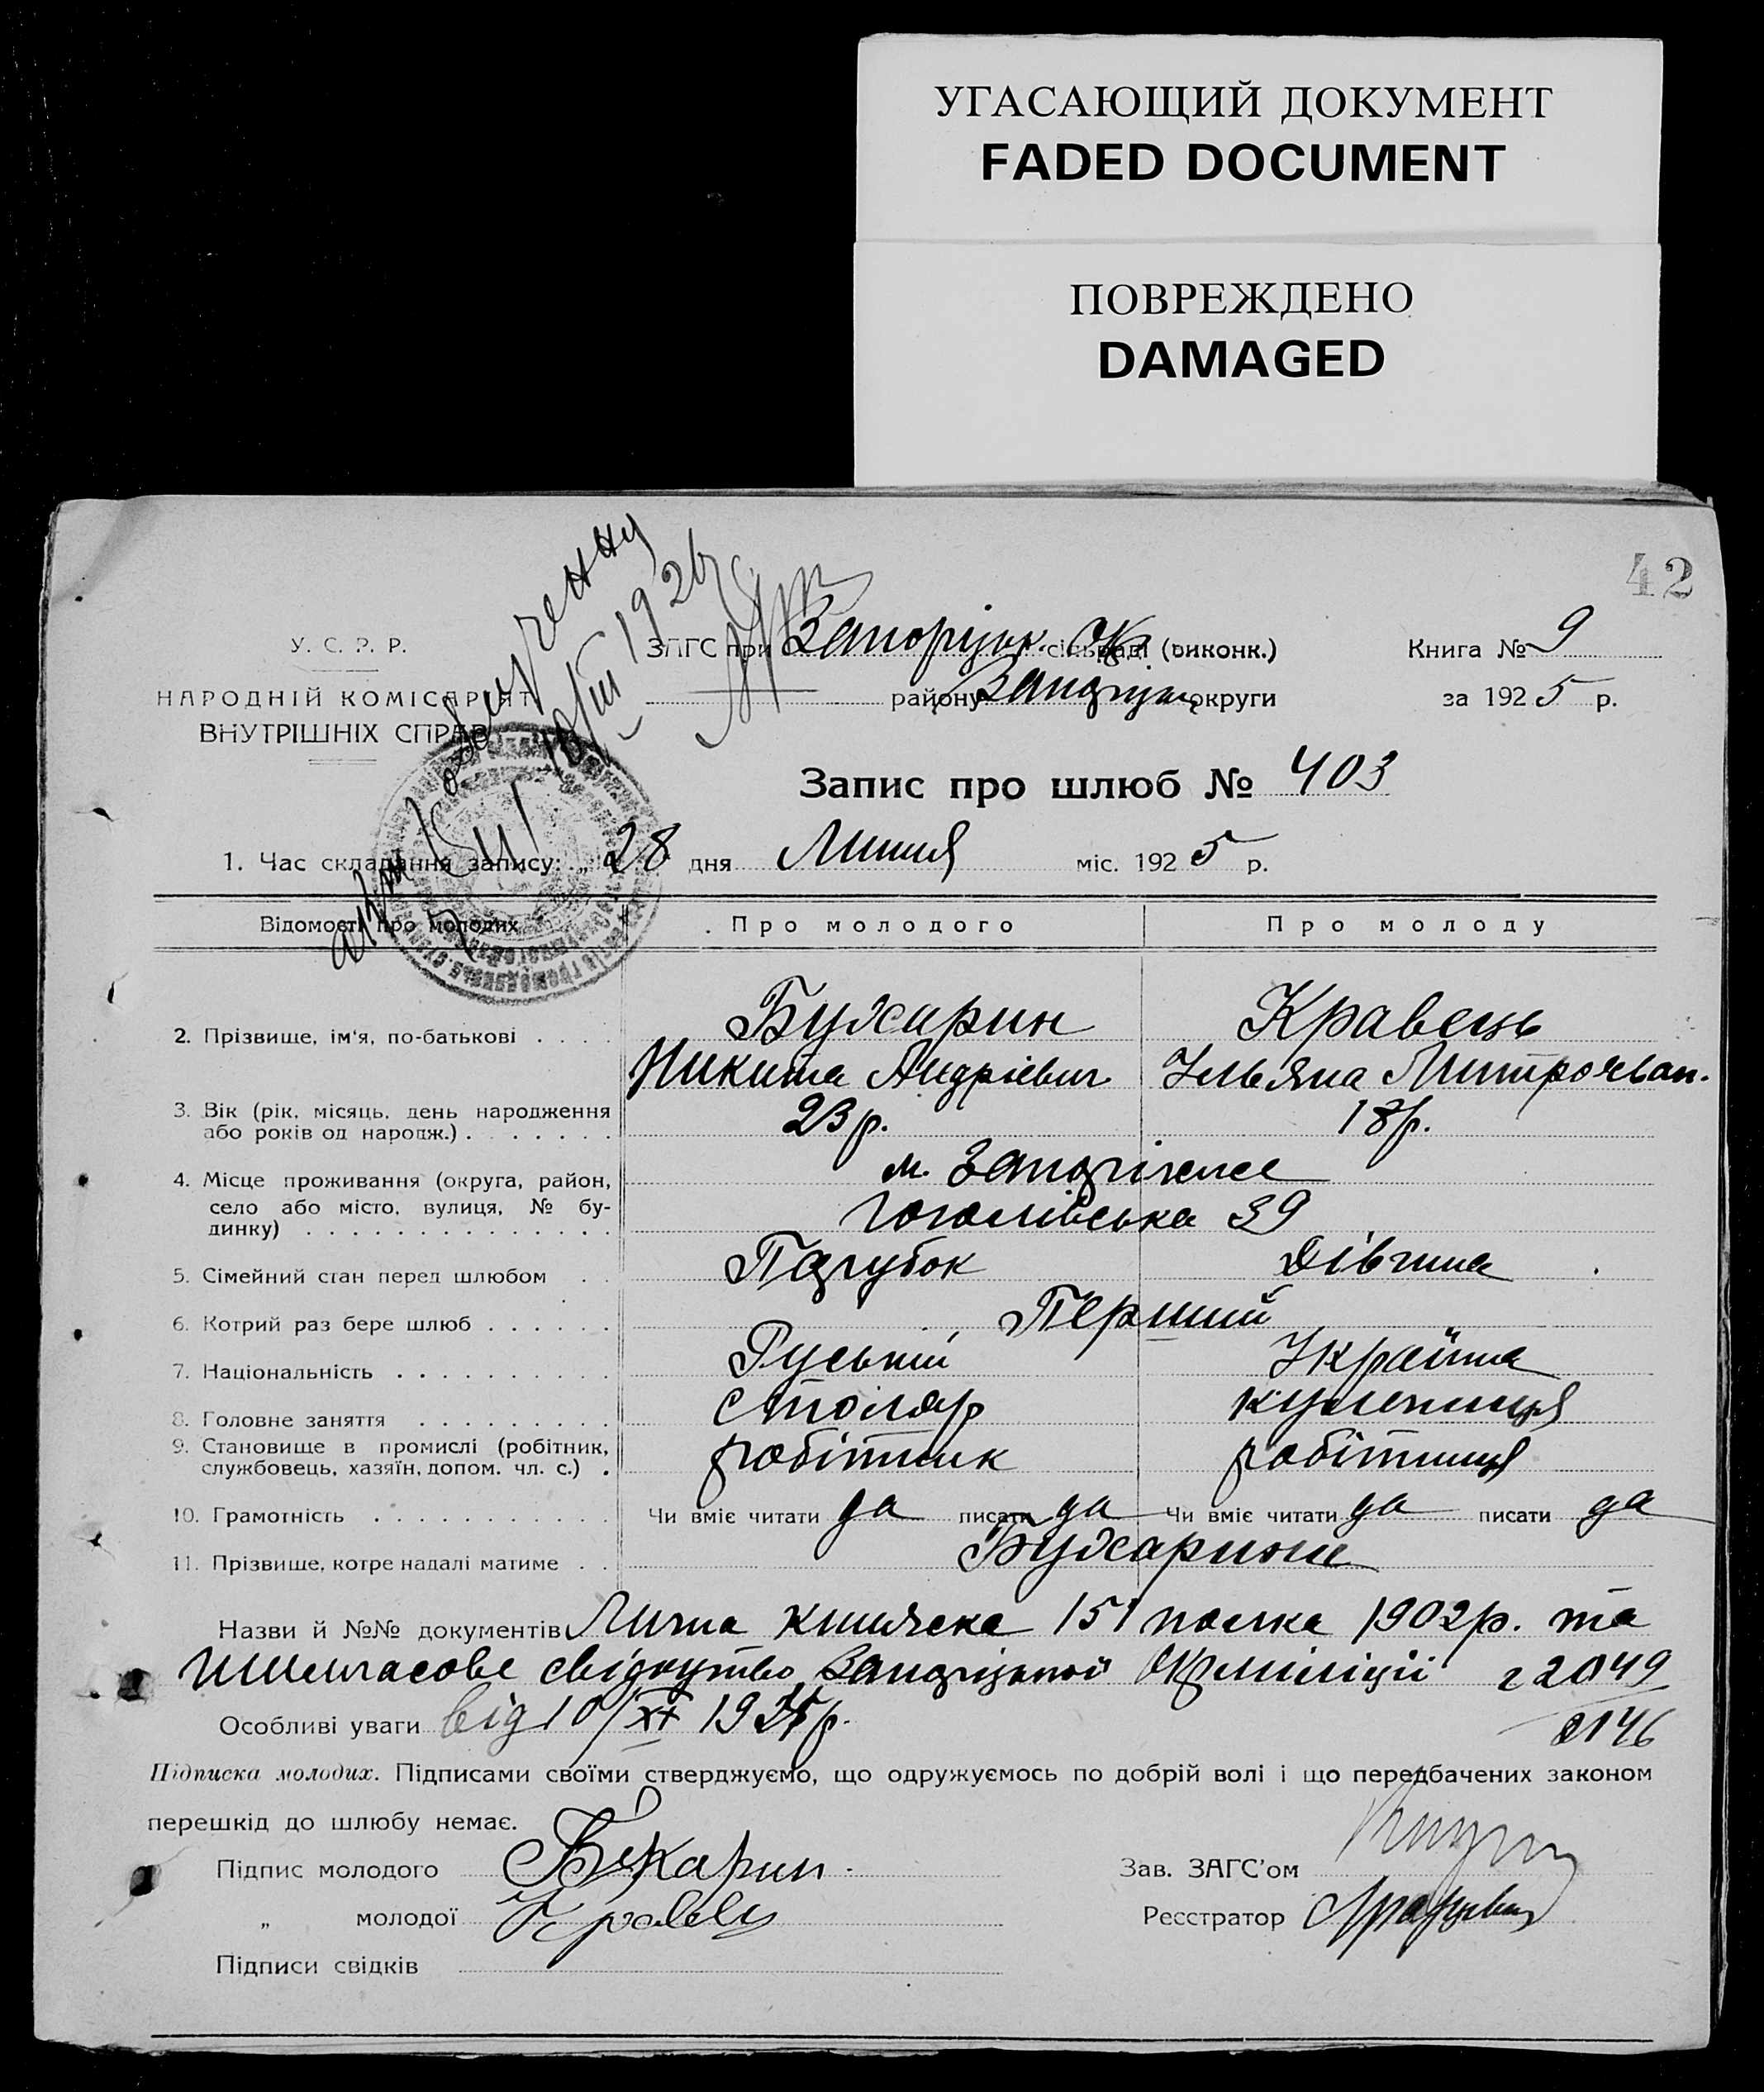 УГАСАЮЩИЙ ДОКУМЕНТ
FADED DOCUMENT
ПОВРЕЖДЕНО
DAMAGED
42
У. С. Р. Р.
НАРОДНІЙ КОМІСАРІЯТ
ВНУТРІШНІХ СПРАВ
ЗАГС при Запоріцьк. Окр сільраді (виконк.)
району Запоріцьк округи
Книга № 9
за 1925 р.
Запис про шлюб № 403
1. Час складання запису: „ 28 дня Липня міс. 1925 р.
Відомості про молодих
Про молодого
Про молоду
2. Прізвище, ім'я, по-батькові
Бухарин Кравець
Никита Андрієвич Ульяна
3. Вік (рік, місяць, день народження
або років од народж.)
23 р. 18 р.
4. Місце проживання (округа, район,
село або місто, вулиця, № бу-
динку)
м. Запоріжжє
Гоголівська 39
5. Сімейний стан перед шлюбом Парубок Дівчина
6. Котрий раз бере шлюб Перший
7. Національність Руський Українка
8. Головне заняття Столяр
9. Становище в промислі (робітник,
службовець, хазяїн, допом. чл. с.)
робітник робітниця
10. Грамотність Чи вміє читати да писати да Чи вміє читати да писати да
11. Прізвище, котре надалі матиме Бухарини
Назви й №№ документів Лична книжка 151 полка 1902 р. та
свідоцтво Запоріцької Окрміліції 2049
Особливі уваги від 10/XI 192 р. 2146
Підписка молодих. Підписами своїми стверджуємо, що одружуємось по добрій волі і що передбачених законом
перешкід до шлюбу немає.
Підпис молодого Бухарин
„ молодої Кравец
Зав. ЗАГС'ом
Реєстратор
Підписи свідків